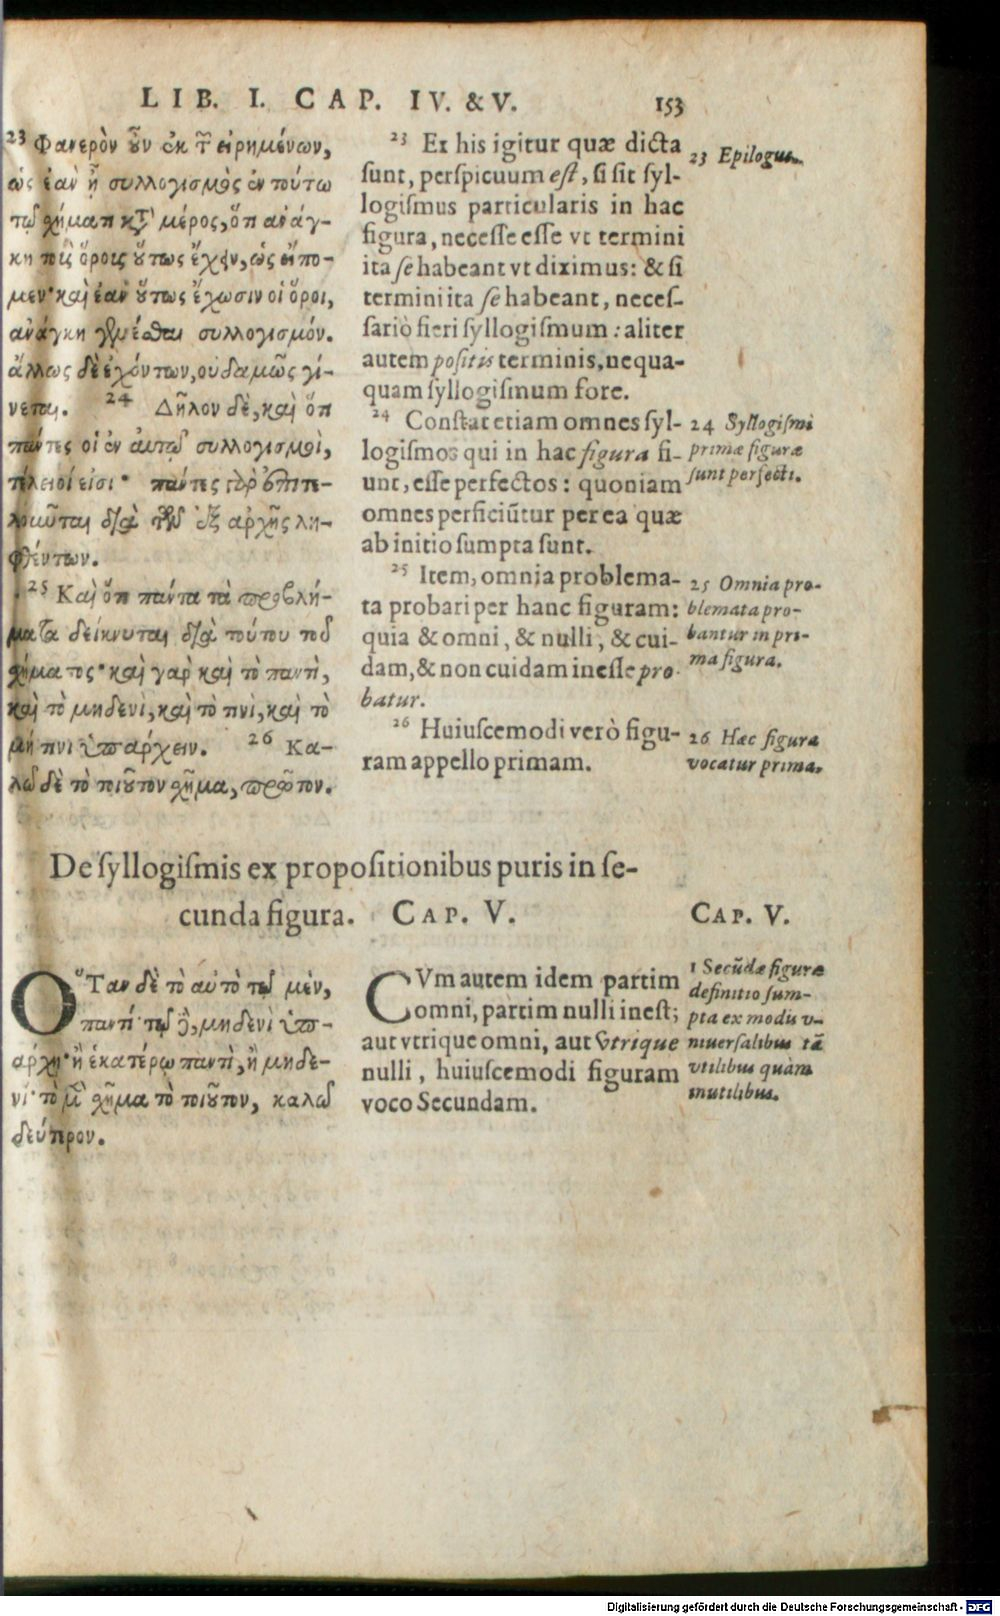 LIB. I. CAP. IV. & V. 153
23 Φανερὸν οὖν ἐκ τῶν εἰρημένων,
ὡς ἐὰν ᾖ συλλογισμὸς ἐν τούτῳ
τῷ χήματι κτ' μέρος, ὅτι ἀνάγ-
κη τοὺς ὅρους οὕτως ἔχειν, ὡς εἴπο-
μεν· καὶ ἐὰν οὕτως ἔχωσιν οἱ ὅροι,
ἀνάγκη γενέσθαι συλλογισμόν.
ἄλλως δὲ ἐχόντων, οὐδαμῶς γί-
νεται. 24 Δῆλον δὲ, καὶ ὅτι
πάντες οἱ ἐν αὐτῷ συλλογισμοὶ,
τέλειοί εἰσι· πάντες γὰρ ἐπιτε-
λοῦνται διὰ τῶν ἐξ ἀρχῆς λη-
φθέντων.
25 Καὶ ὅτι πάντα τὰ προβλή-
ματα δείκνυται διὰ τούτου τοῦ
χήματος· καὶ γὰρ καὶ τὸ παντὶ,
καὶ τὸ μηδενὶ, καὶ τὸ τινὶ, καὶ τὸ
μή τινι ὑπάρχειν. 26 Κα-
λῶ δὲ τὸ τοιοῦτον χῆμα, πρῶτον.
23 Ex his igitur quæ dicta
sunt, perspicuum est, si sit syl-
logismus particularis in hac
figura, necesse esse vt termini
ita se habeant vt diximus: & si
termini ita se habeant, neces-
sariò fieri syllogismum: aliter
autem positis terminis, nequa-
quam syllogismum fore.
24 Constat etiam omnes syl-
logismos qui in hac figura fi-
unt, esse perfectos: quoniam
omnes perficiūtur per ea quæ
ab initio sumpta sunt.
25 Item, omnia problema-
ta probari per hanc figuram:
quia & omni, & nulli, & cui-
dam, & non cuidam inesse pro-
batur.
26 Huiuscemodi verò figu-
ram appello primam.
23 Epilogus.
24 Syllogismi
primæ figuræ
sunt perfecti.
25 Omnia pro-
blemata pro-
bantur in pri-
ma figura.
26 Hæc figura
vocatur prima.
De syllogismis ex propositionibus puris in se-
cunda figura. CAP. V.
CAP. V.
ὍΤαν δὲ τὸ αὐτὸ τῷ μὲν,
παντί· τῷ δὲ, μηδενὶ ὑπ-
άρχῃ· ἢ ἑκατέρῳ παντὶ, ἢ μηδε-
νί· τὸ μὲν χῆμα τὸ τοιοῦτον, καλῶ
δεύτερον.
CVm autem idem partim
omni, partim nulli inest;
aut vtrique omni, aut vtrique
nulli, huiuscemodi figuram
voco Secundam.
1 Secūdæ figuræ
definitio sum-
pta ex modis v-
niuersalibus tā
vtilibus quàm
inutilibus.
Digitalisierung gefördert durch die Deutsche Forschungsgemeinschaft - DFG